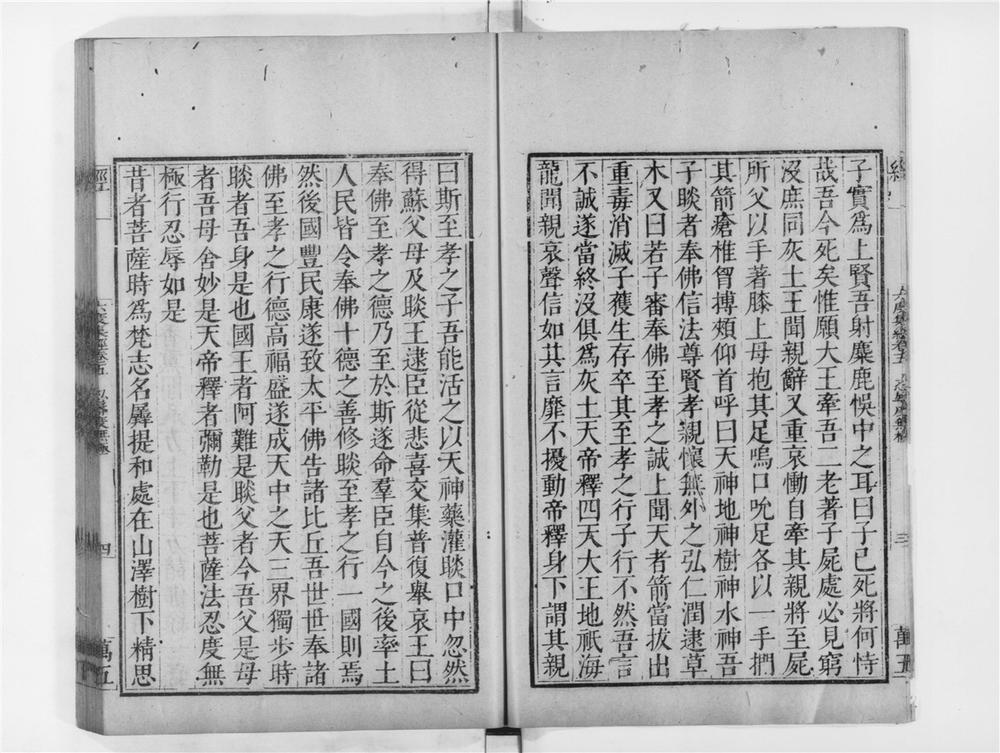 子實爲上賢吾射麋鹿悞中之耳曰子已死將何恃
哉吾今死矣惟願大王牽吾二老著子屍處必見窮
沒庶同灰土王聞親辭又重哀慟自牽其親將至屍
所父以手著膝上母抱其足嗚口吮足各以一手捫
其箭瘡椎胷搏頰仰首呼曰天神地神樹神水神吾
子睒者奉佛信法尊賢孝親懷無外之弘仁潤逮草
木又曰若子審奉佛至孝之誠上聞天者箭當拔出
重毒消滅子獲生存卒其至孝之行子行不然吾言
不誠遂當終沒俱爲灰土天帝釋四天大王地祇海
龍聞親哀聲信如其言靡不擾動帝釋身下謂其親
曰斯至孝之子吾能活之以天神藥灌睒口中忽然
得蘇父母及睒王逮臣從悲喜交集普復舉哀王曰
奉佛至孝之德乃至於斯遂命羣臣自今之後率土
人民皆令奉佛十德之善修睒至孝之行一國則焉
然後國豐民康遂致太平佛告諸比丘吾世世奉諸
佛至孝之行德高福盛遂成天中之天三界獨步時
睒者吾身是也國王者阿難是睒父者今吾父是母
者吾母舍妙是天帝釋者彌勒是也菩薩法忍度無
極行忍辱如是
昔者菩薩時爲梵志名羼提和處在山澤樹下精思
經
四
萬五